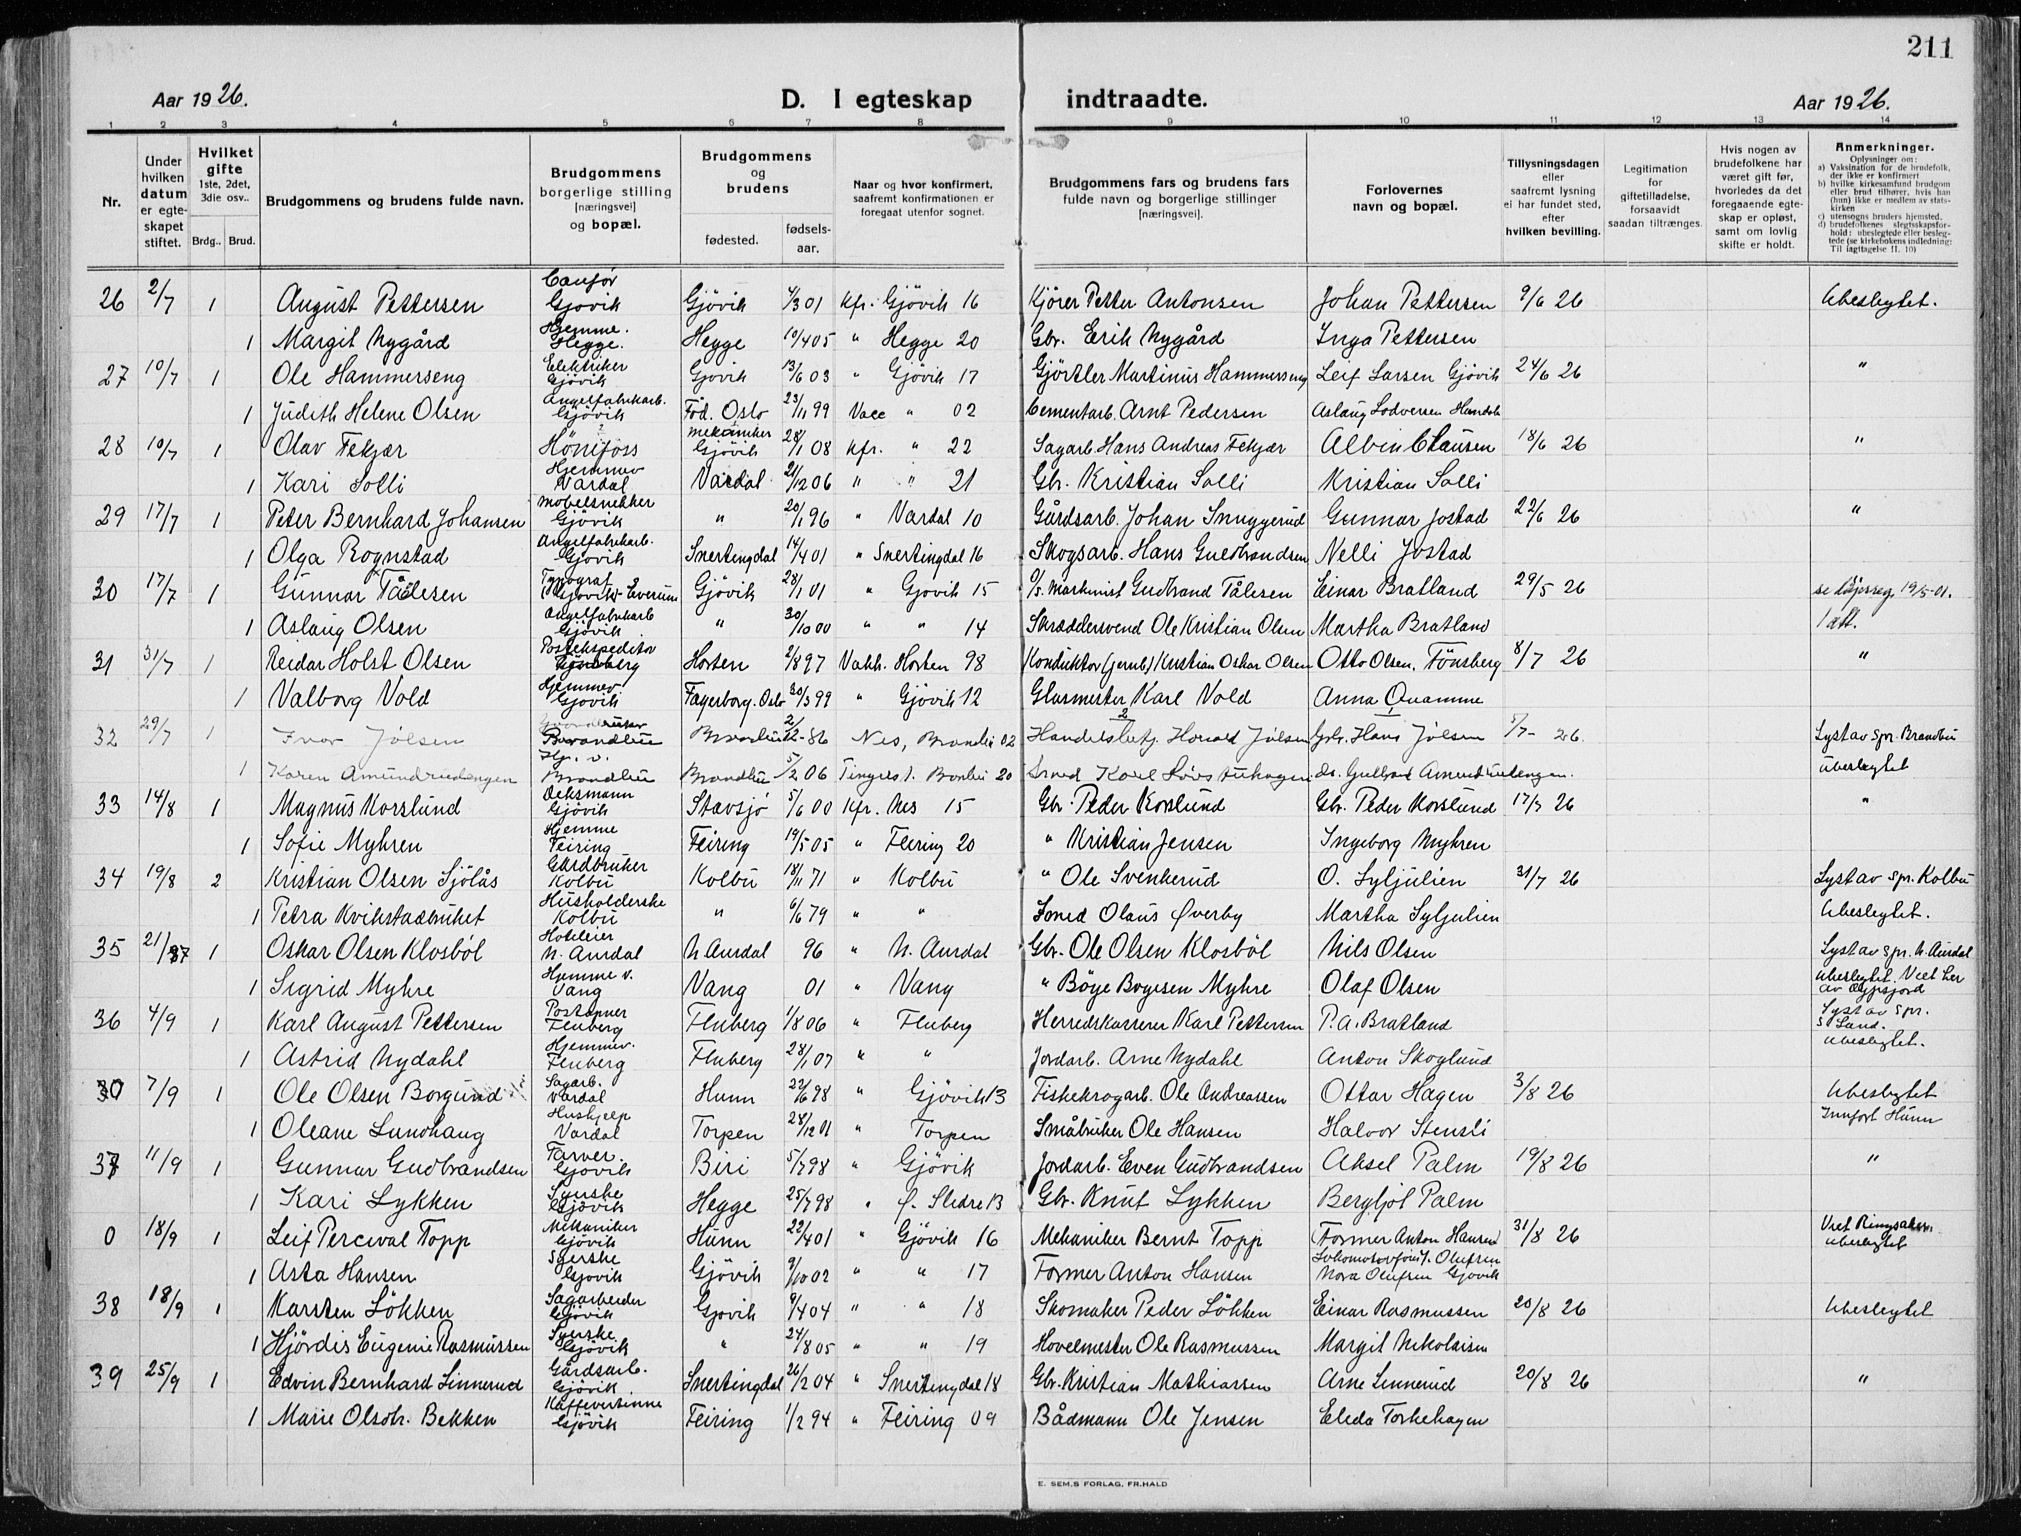 211
Aar 1926.
D. I egteskap indtraadte.
Aar 1926.
1 2 3 4 5 6 7 8 9 10 11 12 13 14
Nr.
Under hvilken datum er egte-skapet stiftet.
Hvilket gifte 1ste, 2det, 3die osv..
Brdg.. Brud.
Brudgommens og brudens fulde navn.
Brudgommens borgerlige stilling [næringsvei] og bopæl.
Brudgommens og brudens
fødested.
fødsels-aar.
Naar og hvor konfirmert, saafremt konfirmationen er foregaat utenfor sognet.
Brudgommens fars og brudens fars fulde navn og borgerlige stillinger [næringsvei].
Forlovernes navn og bopæl.
Tillysningsdagen eller saafremt lysning ei har fundet sted, efter hvilken bevilling.
Legitimation for giftetilladelse, forsaavidt saadan tiltrænges.
Hvis nogen av brudefolkene har været gift før, hvorledes da det foregaaende egte-skap er opløst, samt om lovlig skifte er holdt.
Anmerkninger.
Oplysninger om:
a) Vaksination for de brudefolk, der ikke er konfirmert
b) hvilke kirkesamfund brudgom eller brud tilhører, hvis han (hun) ikke er medlem av stats-kirken
c) utensogns bruders hjemsted.
d) brudefolkenes slegtsskapsfor-hold: ubeslegtede eller besleg-tede (se kirkebokens indledning: Til Iagttagelse II. 10)
26 2/7 1 August Pettersen Gjövik Gjövik 4/3 01 Kfr. Gjövik 16 Kjörer Petter Antonsen Johan Pettersen 9/6 26 Ubeslegtet.
1 Margit Nygård Hjemme. Hegge. Hegge 19/4 05 " Hegge 20 Gbr. Erik Nygård Inga Pettersen
27 10/7 1 Ole Hammerseng Elektriker Gjövik Gjövik 13/6 03 " Gjövik 17 Gjörtler Martinus Hammerseng Leif Larsen Gjövik 24/6 26 "
1 Judith Helene Olsen Angelfabrikarb. Gjövik Föd. Oslo 23/11 99 Vacc " 02 Cementarb. Arnt Pedersen Aslaug
28 10/7 1 Olav Fekjær mekaniker Hönifoss Gjövik 28/1 08 kfr. " 22 Sagarb. Hans Andreas Fekjær Albin Clausen 18/6 26 "
1 Kari Solli Hjemmev Vardal Vardal 21/12 06 " " 21 Gbr. Kristian Solli Kristian Solli
29 17/7 1 Peter Bernhard Johansen Möbelsnekker Gjövik " 20/1 96 " Vardal 10 Gårdsarb. Johan Snuggerud Gunnar Jostad 22/6 26 "
1 Olga Rognstad Angelfabrikarb. Gjövik Snertingdal 14/4 01 " Snertingdal 16 Skogsarb. Hans Guldbrandsen Nelli Jostad
30 17/7 1 Gunnar Tålesen Typograf Gjövik Gjövik 28/1 01 " Gjövik 15 Maskinist Gudbrand Tålesen Einar Bratland 29/5 26 se 19/5-01.
1 Aslaug Olsen Angelfabrikarb Gjövik " 30/10 00 " " 14 Skræddersvend Ole Kristian Olsen Martha Bratland 1 att.
31 31/7 1 Reidar Holst Olsen Postekspeditör Horten 2/8 97 Vakk. Horten 98 Konduktör (jernb) Kristian Oskar Olsen Otto Olsen, Tönsberg 8/7 26 "
1 Valborg Vold Hjemmev Gjövik Fagerborg. Oslo 30/3 99 " Gjövik 12 Glasmester Karl Vold Anna Qvamme
32 29/7 1 Ivar Jölsen Gårdbruker Brandbu Brandbu 2/12-86 Nes, Brandbu 02 Handelsbetj. Jölsen Gbr. Hans Jölsen 5/7- 26. Lyst av Spr. Brandbu
1 Karen Amundrudengen Hj. v. Brandbu Brandbu 5/2 06 Brandbu 20 Karl Amundrudengen. Ubeslegtet
33 14/8 1 Magnus Korslund Dekksmann Gjövik Stavsjö 5/6 00 Kfr. Nes 15 Gbr. Peder Korslund Gbr. Peder Korslund 17/7 26 "
1 Sofie Myhren Hjemme Feiring Feiring 19/5 05 " Feiring 20 " Kristian Jensen Ingeborg Myhren
34 19/8 2 Kristian Olsen Sjölås Gårdbruker Kolbu Kolbu 18/11 71 " Kolbu " Ole Svenkerud O. Syljulien 31/7 26 Lyst av Spr. Kolbu
1 Petra Kvikstadbuhet Husholderske Kolbu " 6/6 79 " " Olaus Överby Martha Syljulien Ubeslegtet.
35 21/7 1 Oskar Olsen Klosböl Hoteleier N. Aurdal N. Aurdal 96 " N. Aurdal Gbr. Ole Olsen Klosböl Nils Olsen Lyst av Spr. N. Aurdal
1 Sigrid Myhre Hjemme v. Vang Vang 01 " Vang " Böye Boyesen Myhre Olaf Olsen Ubeslegtet. Viet her av
36 4/9 1 Karl August Pettersen Poståpner Fluberg Fluberg 1/8 06 " Fluberg Herredskasserer Karl Pettersen P.A. Bratland Lyst av Spr. S Land.
1 Astrid Nydahl Hjemmev. Fluberg Fluberg 28/1 07 " " Jordarb. Arne Nydahl Anton Skoglund Ubeslegtet.
7/9 1 Ole Olsen Borgund Sagarb. Vardal Hunn 22/6 98 " Gjövik 13 Fiskekrogarb. Ole Andreassen Ottar Hagen 3/8 26 Ubeslegtet
1 Oleane Lundhaug Hushjelp Vardal Torpen 28/12 01 " Torpen Småbruker Ole Hansen Halvor Stensli Innfört Hunn
37 11/9 1 Gunnar Gudbrandsen Farver. Gjövik Biri 5/7 98 " Gjövik Jordarb. Even Gudbrandsen Aksel Palm 19/8 26 "
1 Kari Lykken Syerske Gjövik Hegge 25/7 98 " Ö. Slidre 13 Gbr. Knut Lykken Bergljot Palm
0 18/9 1 Leif Percival Topp Mekaniker Gjövik Hunn 22/4 01 " Gjövik 16 Mekaniker Bernt Topp Former Anton Hansen 31/8 26 Viet Ringsaker. Ubeslegtet
1 Asta Hansen Syerske Gjövik Gjövik 9/10 02 " " 17 Former Anton Hansen Olufsen Nora Olufsen Gjövik
38 18/9 1 Karsten Lökken Sagarbeider Gjövik Gjövik 9/4 04 " " 18 Skomaker Peder Lökken Einar Rasmussen 20/8 26 Ubeslegtet
1 Hjördis Eugenie Rasmussen Syerske Gjövik " 24/8 05 " " 19 Hovelmester Ole Rasmussen Margit Nikolaisen
39 25/9 1 Edvin Bernhard Linnerud Gårdsarb. Gjövik Snertingdal 26/2 04 " Snertingdal 18 Gbr. Kristian Mathiassen Arne Linnerud 20/8 26 "
1 Marie Olsdtr. Bekken Kaffevertinne Gjövik Feiring 1/2 94 " Feiring 09 Bådmann Ole Jensen Elida Torkehagen
E. SEM.S FORLAG, FR.HALD